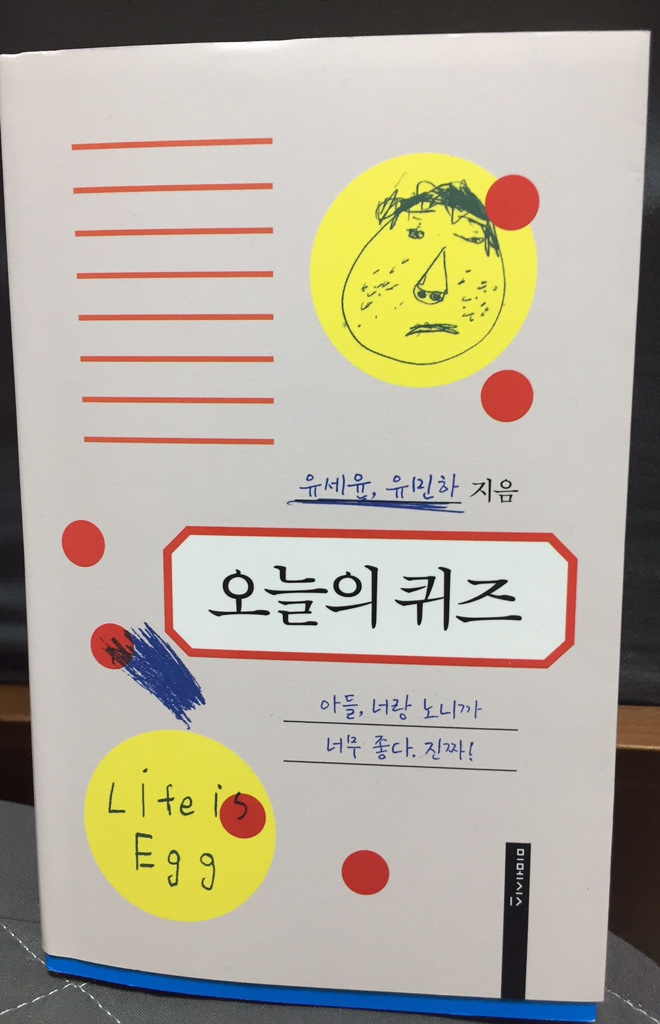 유세윤, 유민하 지음
오늘의 퀴즈
아들, 너랑 노니까
너무 좋다. 진짜!
Life is
Egg
미메시스